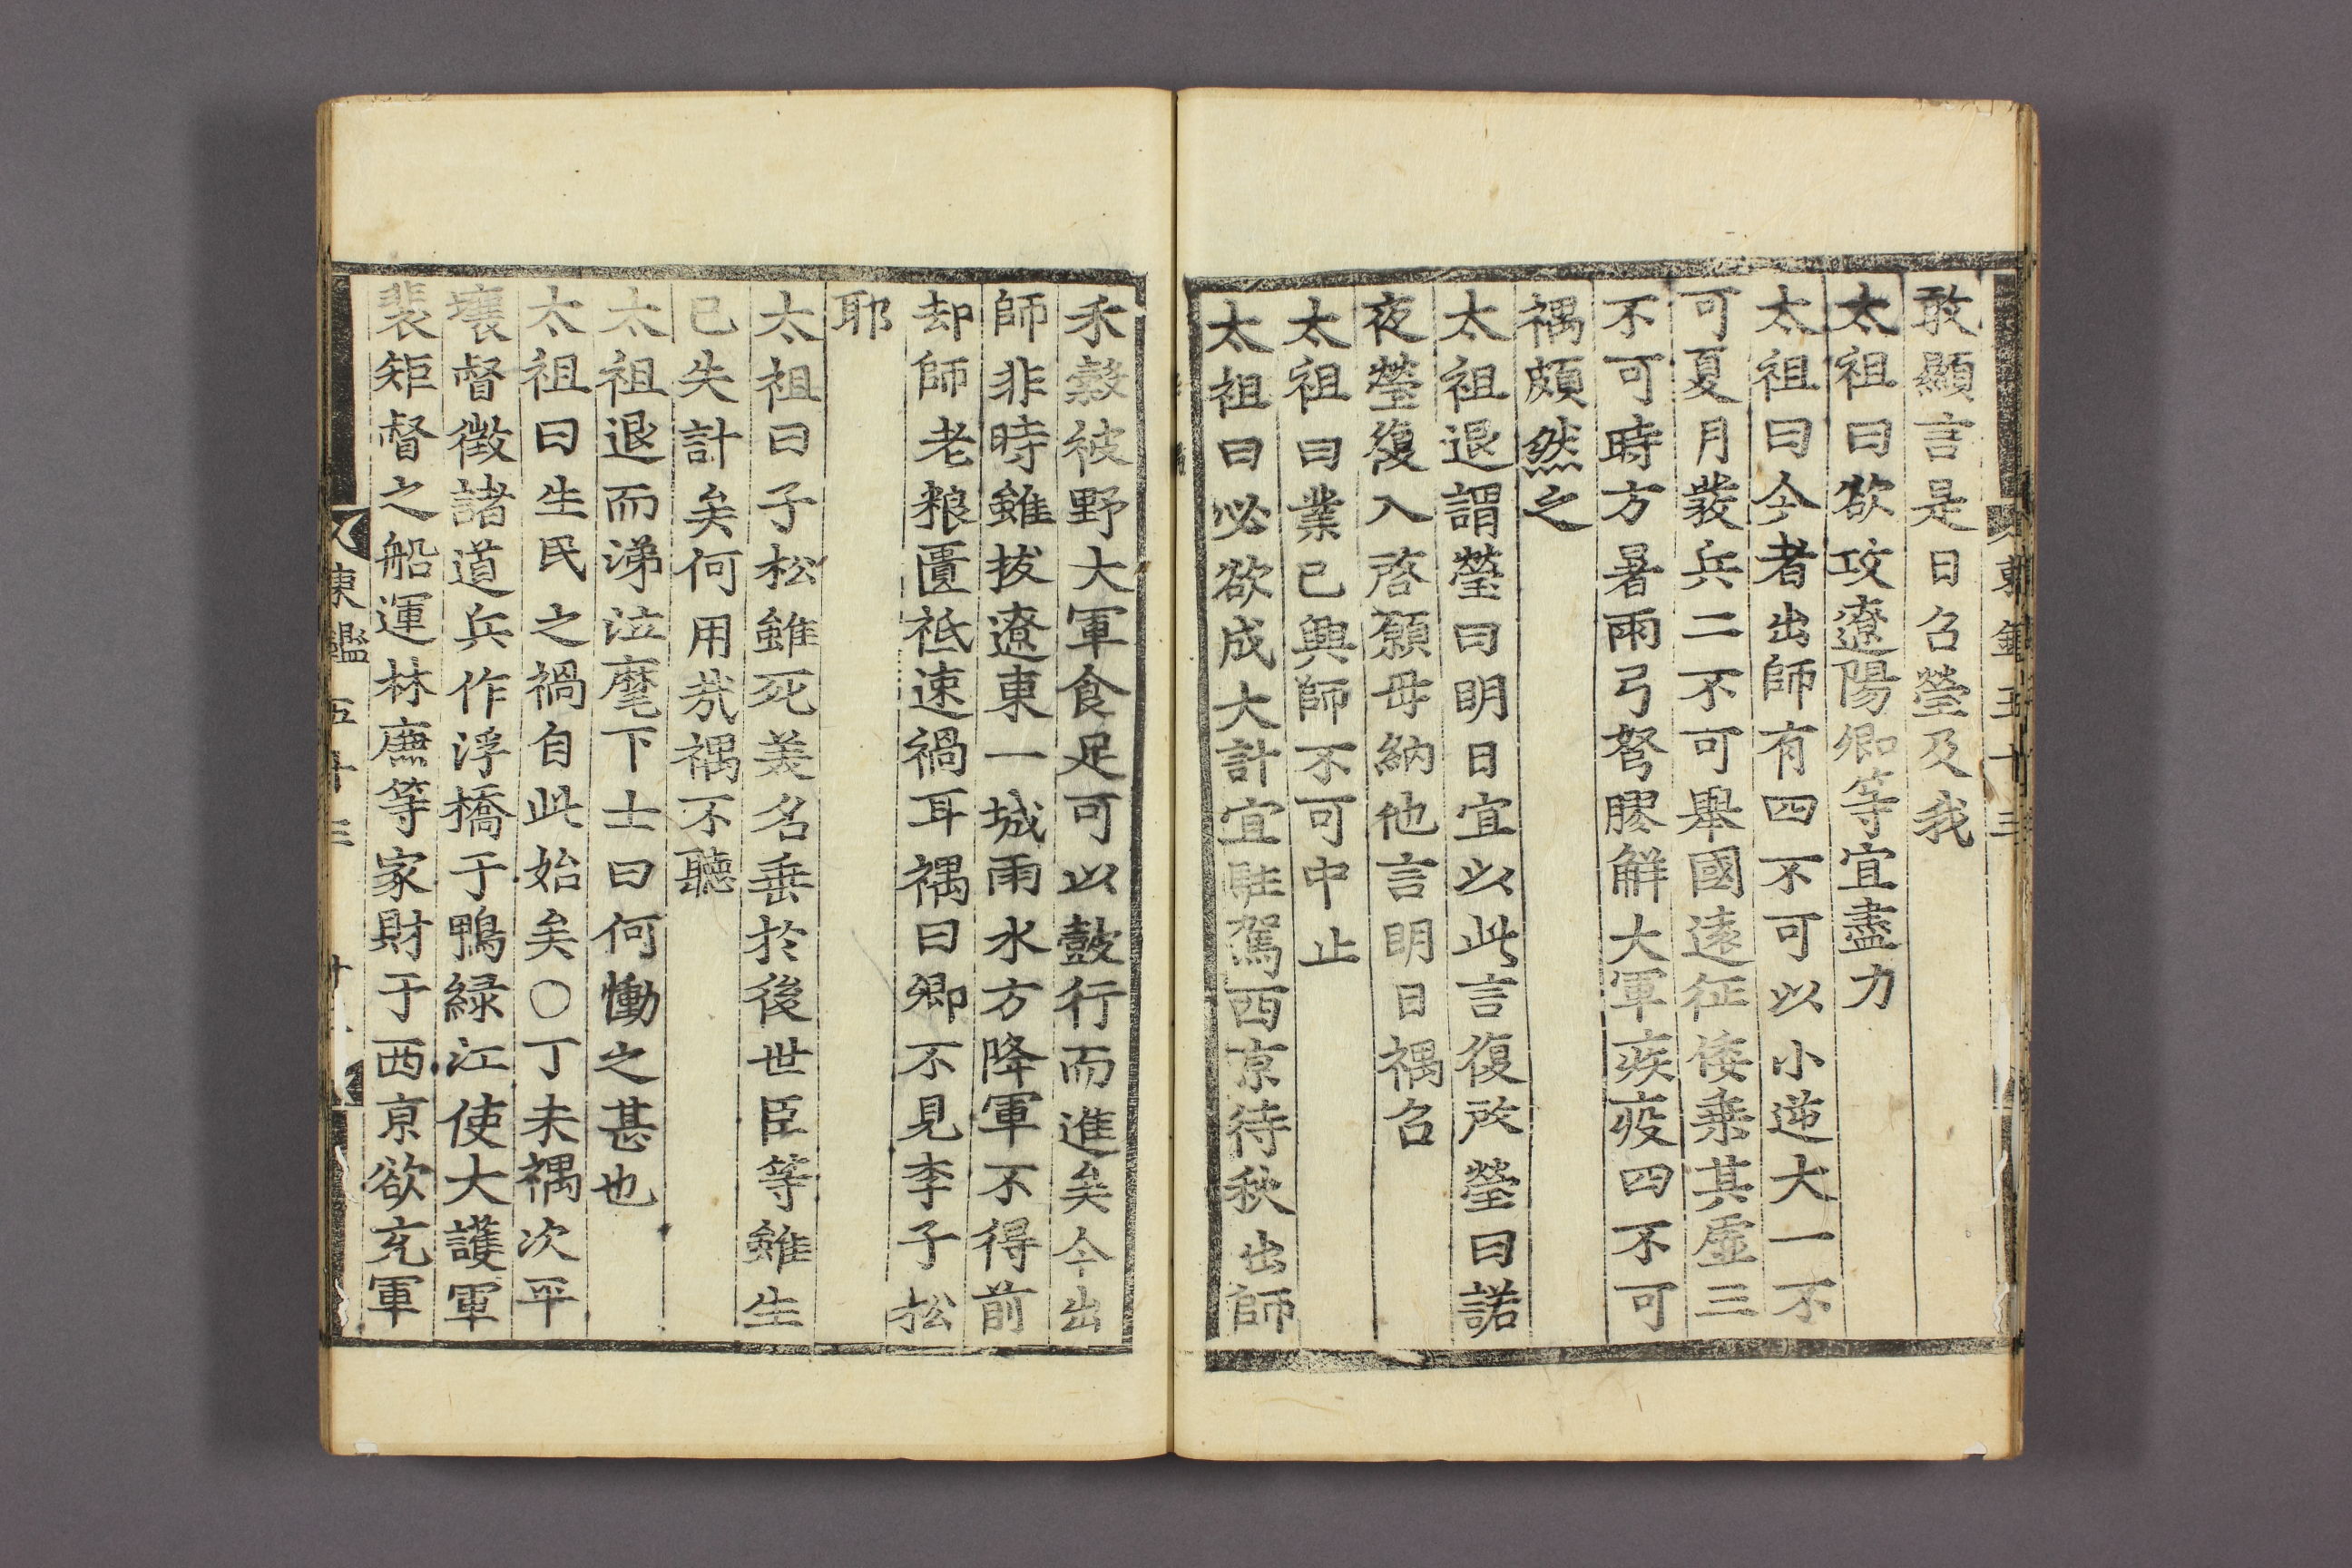 東鑑五十三
敢顯言是日召瑩及我
太祖曰欲攻遼陽卿等宜盡力
太祖曰今者出師有四不可以小逆大一不
可夏月發兵二不可舉國遠征倭乗其虛三
不可時方暑雨弓弩膠解大軍疾疫四不可
禑頗然之
太祖退謂瑩曰明日宜以此言復啓瑩曰諾
夜瑩復入啓願毋納他言明日禑召
太祖曰業已興師不可中止
太祖曰必欲成大計宜駐駕西京待秋出師
禾穀被野大軍食足可以鼓行而進矣今出
師非時雖拔遼東一城雨水方降軍不得前
却師老粮匱祗速禍耳禑曰卿不見李子松
耶
太祖曰子松雖死美名垂於後世臣等雖生
已失計矣何用㦲禑不聽
太祖退而涕泣麾下士曰何慟之甚也
太祖曰生民之禍自此始矣○丁未禑次平
壤督徵諸道兵作浮橋于鴨綠江使大護軍
裴矩督之船運林廉等家財于西京欲充軍
東鑑五十三